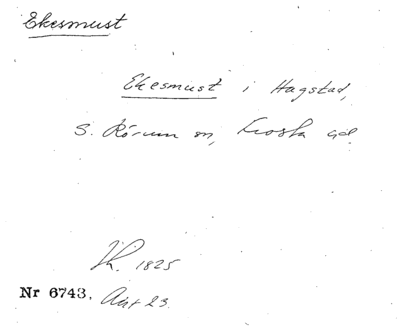 Ekesmust
Ekesmust i Hagstad,
S. Rörum sn, Frosta hd.
1825
Nr 6743.